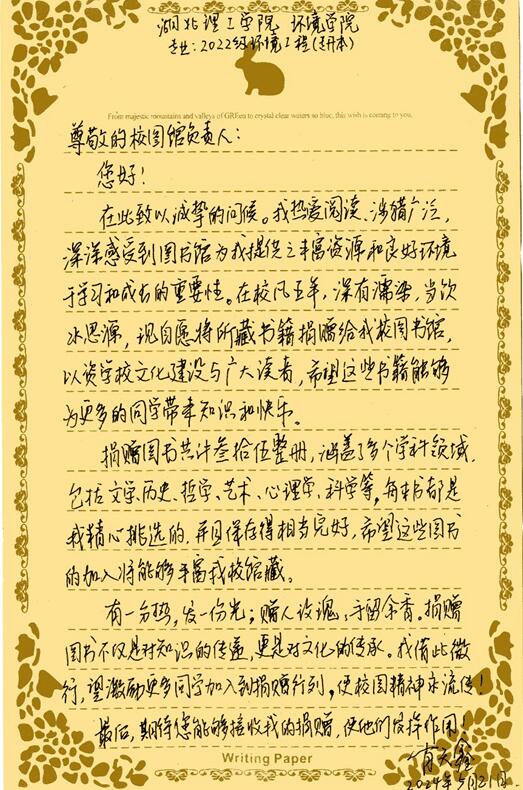 湖北理工学院 环境学院
专业:2022级环境工程(专升本)
From majestic mountains and valleys of GREen to crystal clear waters so blue, this wish is coming to you.
尊敬的校图馆负责人:
您好!
在此致以诚挚的问候。我热爱阅读、涉猎广泛,
深深感受到图书馆为我提供之丰富资源和良好环境
于学习和成长的重要性。在校凡五年,深有濡染,当饮
水思源,现自愿将所藏书籍捐赠给我校图书馆,
以资学校文化建设与广大读者,希望这些书籍能够
为更多的同学带来知识和快乐。
捐赠图书共计叁拾伍整册,涵盖了多个学科领域,
包括文学、历史、哲学、艺术、心理学、科学等,每本书都是
我精心挑选的,并且保存得相当完好,希望这些图书
的加入将能够丰富我校馆藏。
有一分热,发一份光;赠人玫瑰,手留余香。捐赠
图书不仅是对知识的传递,更是对文化的传承。我借此微
行,望激励更多同学加入到捐赠行列,使校园精神永流传!
最后,期待您能够接收我的捐赠,使他们发挥作用!
Writing Paper
肖天鑫
2024年5月21日.